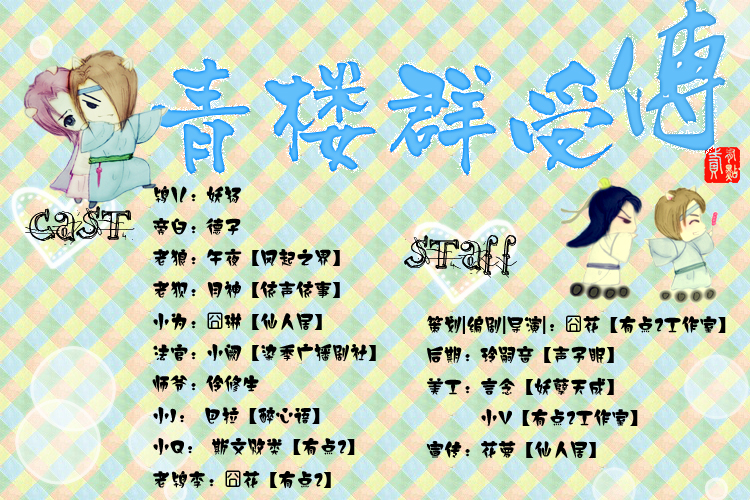 青楼群受傳
CaST
鸨儿：妖孬
帝白：德子
老狼：午夜【风起之界】
老狈：月神【倾声倾事】
小为：囧琳【仙人居】
法官：小阙【染季广播剧社】
师爷：伶修生
小J： 巴拉【醉心语】
小Q： 斯文败类【有点2】
老鸨李：囧花【有点2】
STaff
策划|编剧|导演|：囧花【有点2工作室】
后期：珍嗣音【声子眠】
美工：言念【妖孽天成】
小V【有点2工作室】
宣传：花萝【仙人居】